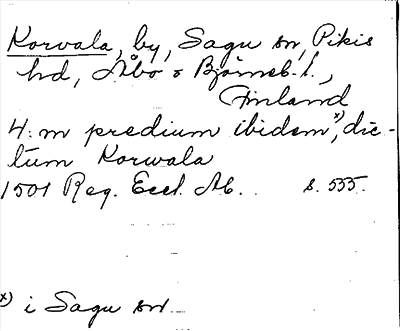 Korvala, by, Sagu sn, Pikis
hd, Åbo o Björneb. l.,
Finland
4: m predium ibidem x), dic-
tum Korwala
1501 Reg. Eccl. Ab. . s. 555.
x) i Sagu sn.